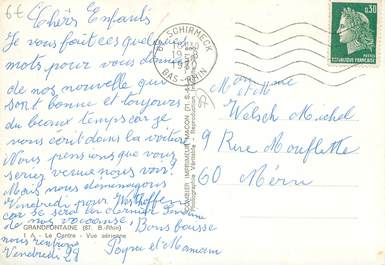 6€
Chèrs Enfants
Je vous fait ces quelques
mots pour vous donner
de nos nouvelle qui
sont bonne et toujours
du beaux temps car je
vous écrit dans la voiture
Nous pensions que vous
seriez venue nous voir.
Mais nous demenagons
Vendredi pour Westhoffen
car se sera la dernier semaine
de nos vacance, Bons bousse
nous rentrons
Vendredi 29 Papy et Maman
GRANDFONTAINE (67. B.-Rhin)
1 A - Le Centre - Vue aérienne
COMBIER IMPRIMEUR MACON
Photographie Véritable - Reproduction
67 SCHIRMECK
BAS-RHIN
0,30
REPUBLIQUE FRANÇAISE
Mr et Mme
Welsch Michel
9 Rue Mouflette
60 Méru